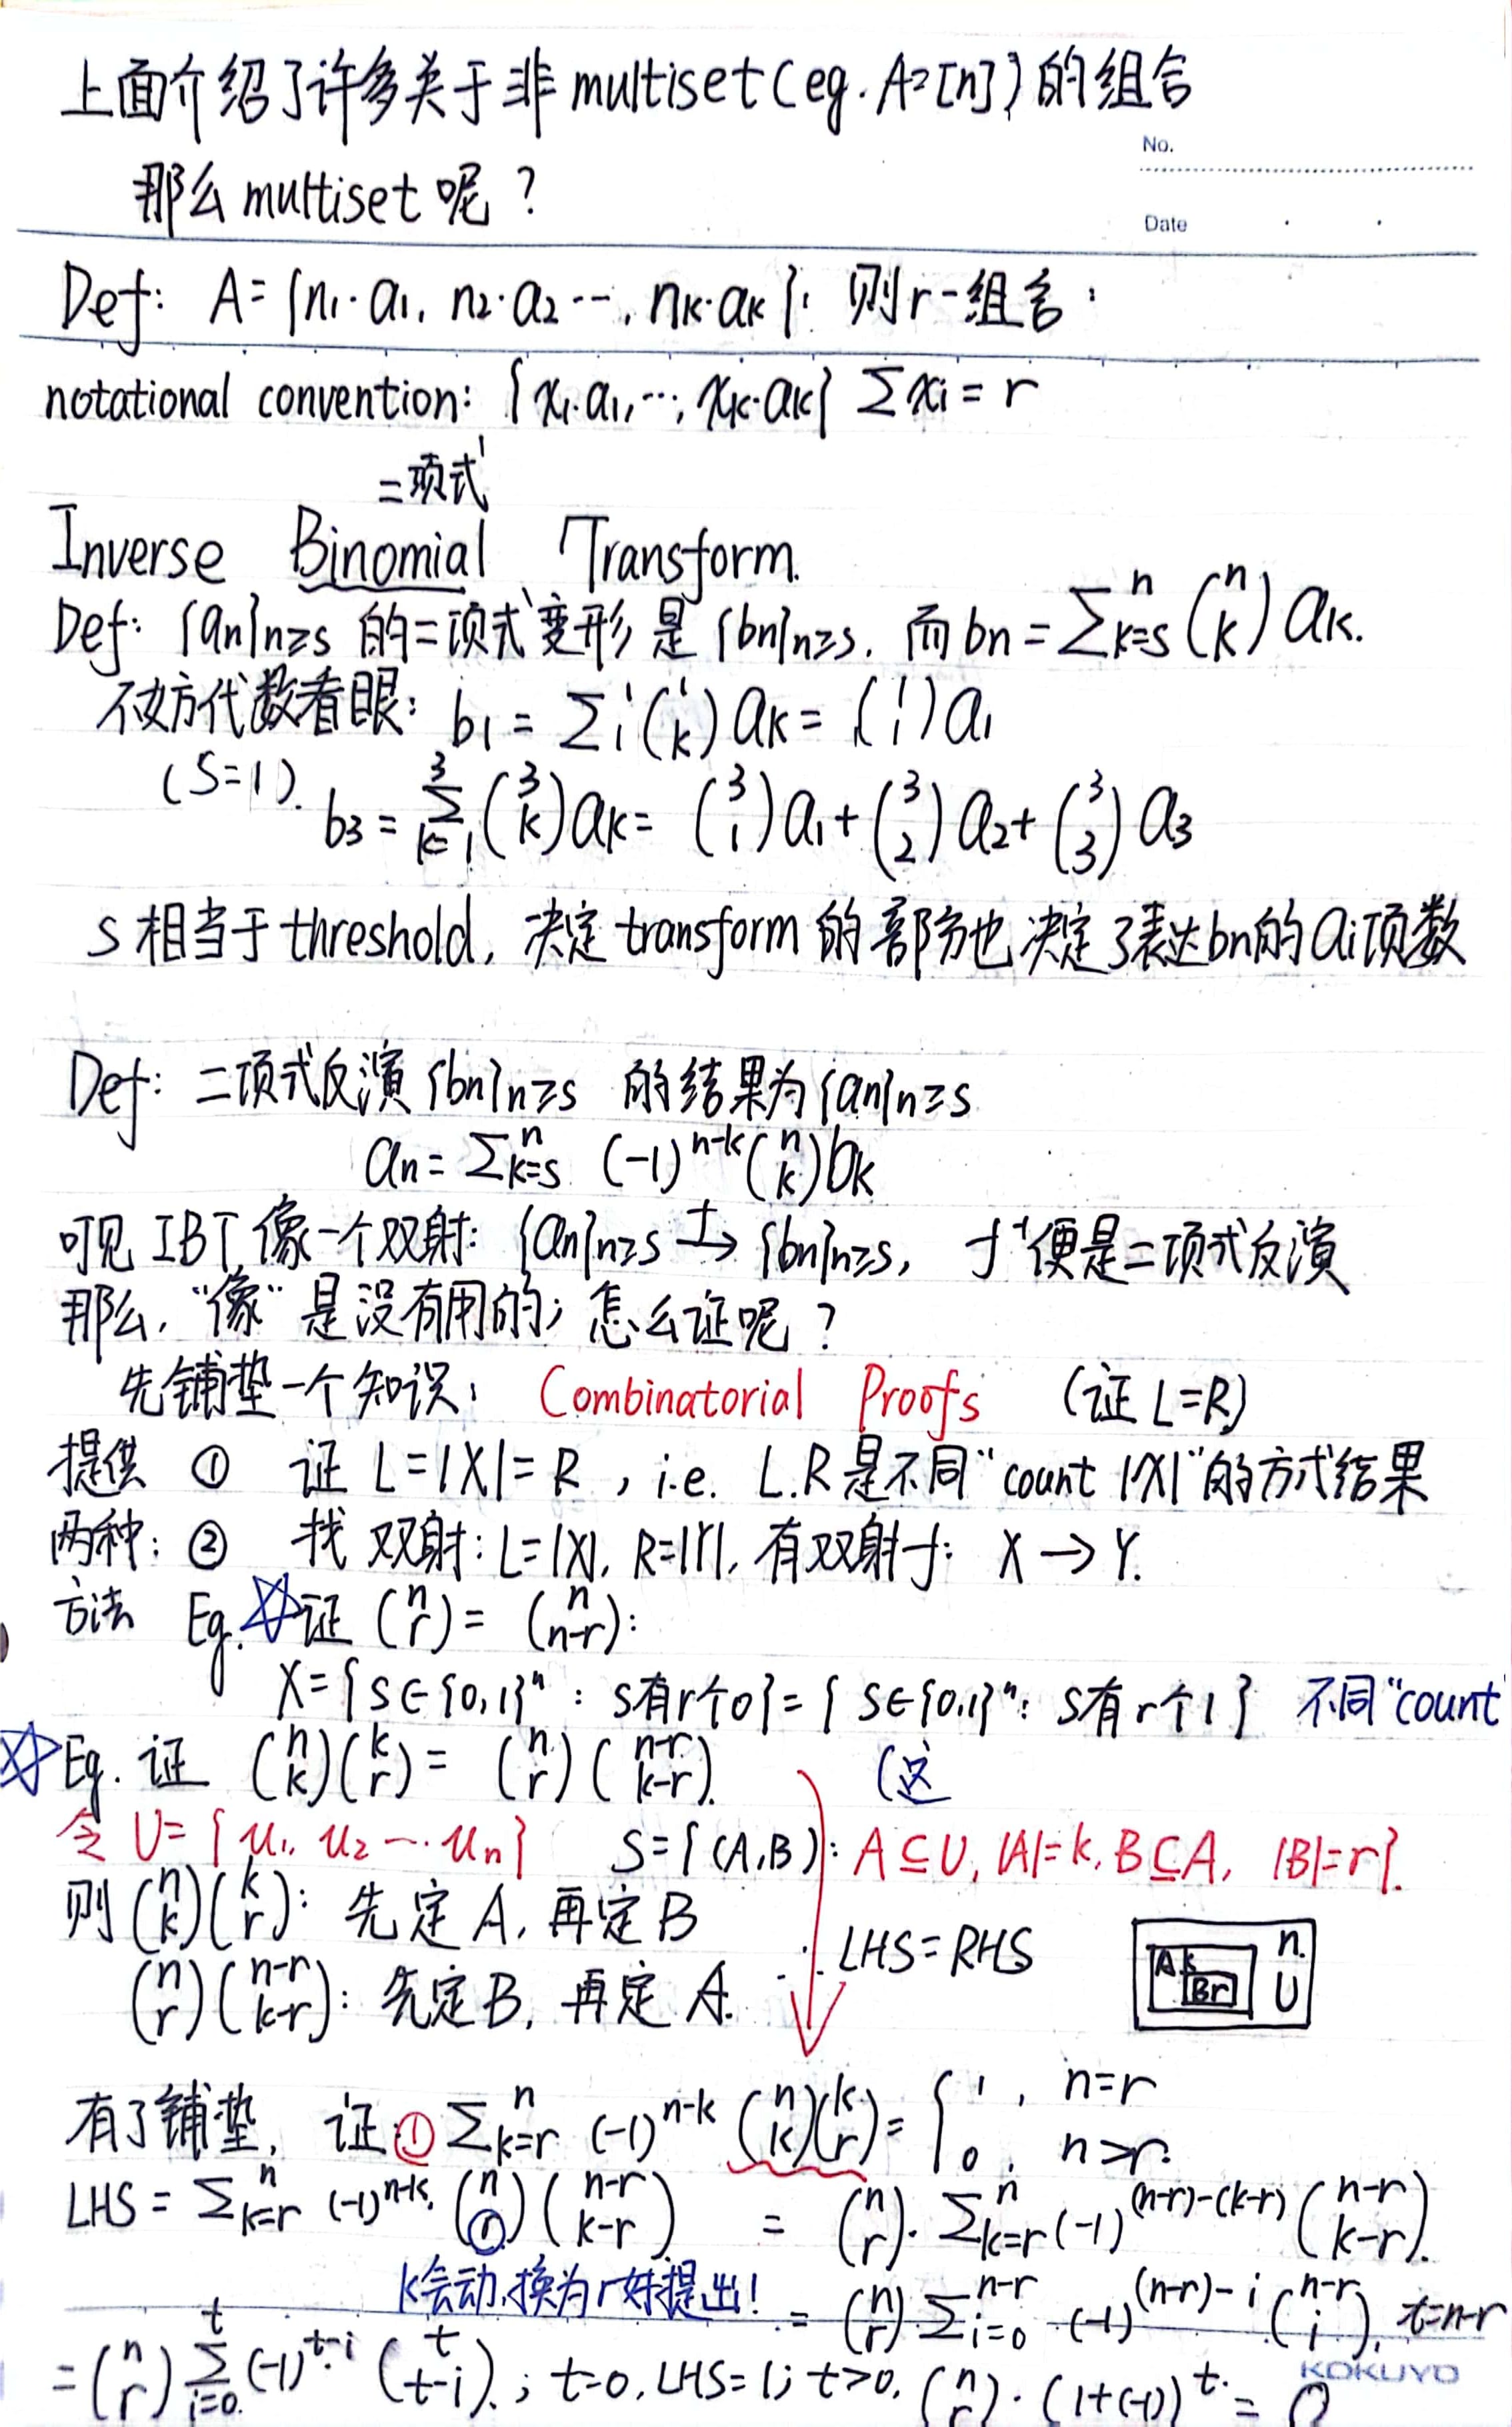 上面介绍了许多关于非 multiset (eg. A=[n]) 的组合
No.
那么 multiset 呢?
Date
Def: A={n₁·a₁, n₂·a₂ ⋯, nₖ·aₖ}; 则 r-组合:
notational convention: {x₁·a₁,⋯, xₖ·aₖ} Σxᵢ = r
二项式
Inverse Binomial Transform.
Def: {aₙ}n≥s 的二项式变形是 {bₙ}n≥s. 而 bₙ = Σ_{k=s}^{n} (n k) aₖ.
不妨代数看眼: b₁ = Σ₁¹ (1 k) aₖ = (1 1) a₁
(S=1). b₃ = Σ_{k=1}^{3} (3 k) aₖ = (3 1) a₁ + (3 2) a₂ + (3 3) a₃
s 相当于 threshold, 决定 transform 的部分也决定了表达 bₙ 的 aᵢ 项数
Def: 二项式反演 {bₙ}n≥s 的结果为 {aₙ}n≥s
aₙ = Σ_{k=s}^{n} (-1)^{n-k} (n k) bₖ
可见 IBT 像一个双射: {aₙ}n≥s →f {bₙ}n≥s, f⁻¹ 便是二项式反演
那么, "像" 是没有用的; 怎么证呢?
先铺垫一个知识: Combinatorial Proofs (证 L=R)
提供 ① 证 L=|X|=R , i.e. L.R 是不同 "count |X|" 的方式结果
两种: ② 找双射: L=|X|, R=|Y|, 有双射 f: X → Y.
方法 Eg. ☆证 (n r) = (n n-r):
X={S∈{0,1}ⁿ : S有r个0}={ S∈{0,1}ⁿ: S有r个1 } 不同 "count
☆Eg. 证 (n k)(k r) = (n r)(n-r k-r). (这
令 U={u₁, u₂ ⋯ uₙ} S={(A,B): A⊆U, |A|=k, B⊆A, |B|=r}.
则 (n k)(k r): 先定 A, 再定 B
∴ LHS=RHS
(n r)(n-r k-r): 先定 B, 再定 A.
A k B r n. U
有了铺垫, 证:① Σ_{k=r}^{n} (-1)^{n-k} (n k)(k r) = { 1, n=r
0, n>r.
LHS = Σ_{k=r}^{n} (-1)^{n-k} (n r)(n-r k-r) = (n r)·Σ_{k=r}^{n} (-1)^{(n-r)-(k-r)} (n-r k-r).
k会动,换为r好提出! = (n r) Σ_{i=0}^{n-r} (-1)^{(n-r)-i} (n-r i), t=n-r
= (n r) Σ_{i=0}^{t} (-1)^{t-i} (t t-i).; t=0, LHS=1; t>0, (n r)·(1+(-1))^t = 0
KOKUYO